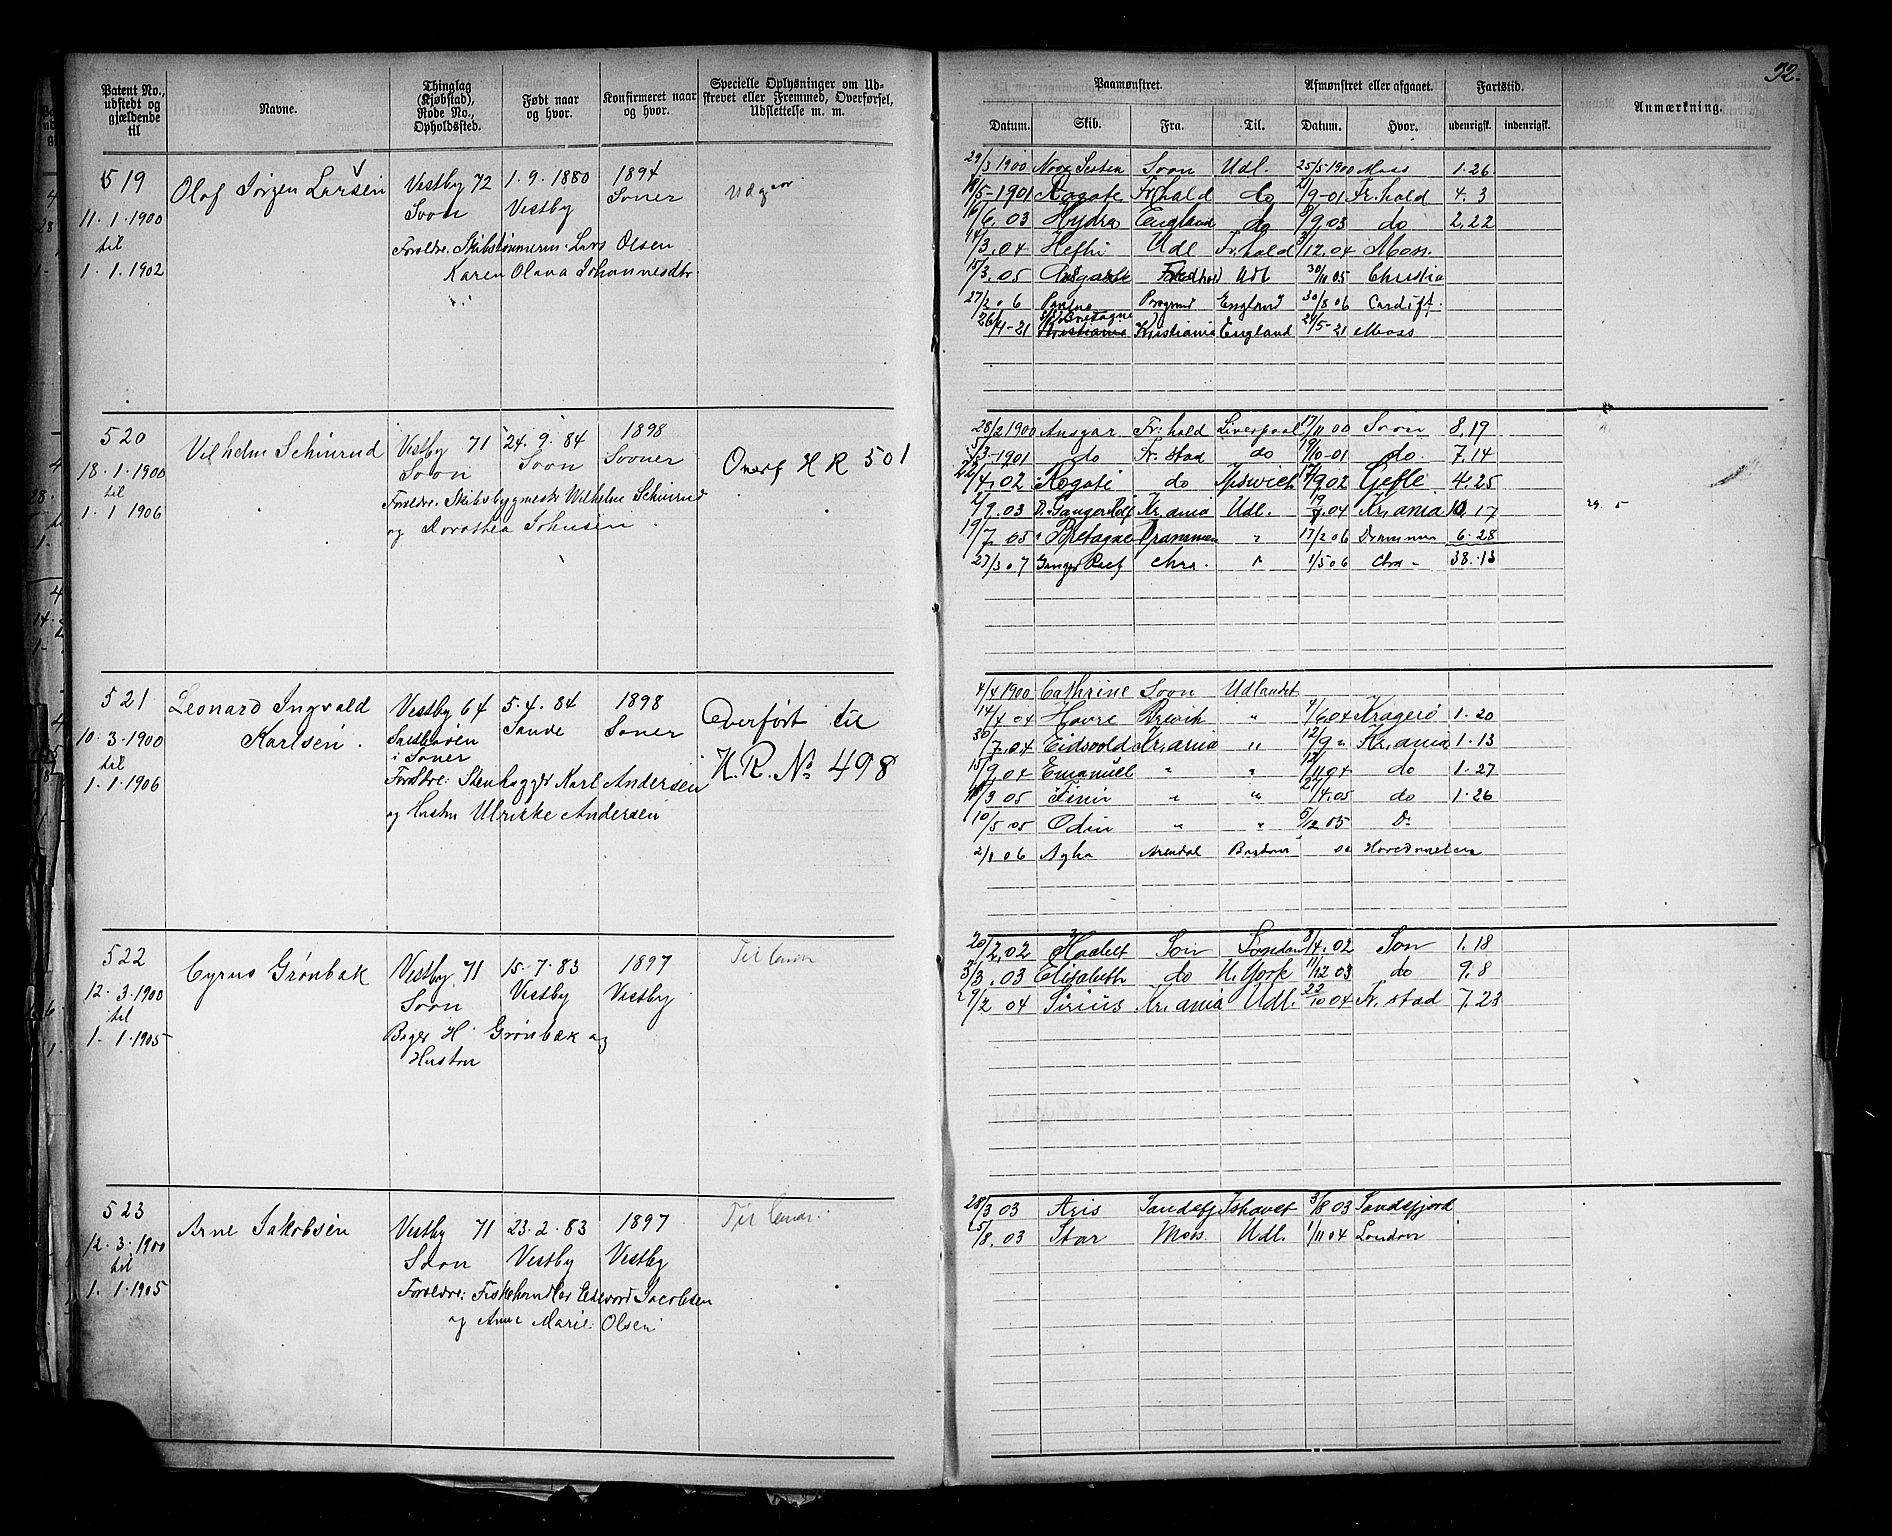 52.
Patent No., udstedt og gjældende til
Navne.
Thinglag (Kjøbstad), Rode No., Opholdssted.
Født naar og hvor.
Konfirmeret naar og hvor.
Specielle Oplysninger om Udstrevet eller Fremmed, Overførsel, Udslettelse m. m.
Paamønstret.
Afmønstret eller afgaaet.
Fartstid.
Anmærkning.
Datum. Skib. Fra. Til. Datum. Hvor. udenrigsk. indenrigsk.
519
11.1.1900
til
1.1.1902
Olaf Jørgen Larsen
Vestby 72
Soon
1.9.1880
Vestby
1894
Soner
Udgaar
Foreldre: Skibstømmerm. Lars Olsen
Karen Olava Johannesdtr.
29/3 1900 Soon Udl. 25/5-1900 Moss 1.26
18/5-1901 Rogate Fr.hald do /9-01 Fr.hald 4.3
16/6.03 Hydra England do /9.03 do 2.22
14/3.04 Udl Fr.hald /12.04 Moss.
15/3.05 Udl 30/11 05 Christia
27/2 06 England 30/8 06 Cardiff.
26/4-21 Bretagne Kristiania England 29/5-21 Moss
520
18.1.1900
til
1.1.1906
Vilhelm Schinrud
Vestby 71
Soon
24.9.84
Soon
1898
Sooner
Overf H R 501
Foreldre: Skibsbygmester Wilhelm Schinrud
og Dorothea Johnsen
28/2 1900 Ansgar Fr:hald Liverpool 17/11 00 Soon 8.19
/3-1901 do Fr.stad do 19/10-01 do. 7.14
22/4.02 Rogate do Ipswich 17/9.02 Gefle 4.25
2/9.03 D. Ganger Rolf Kr.ania Udl. 19/7.04 Kr.ania 10.17
29. 5
19/7.05 " Bretagne Drammen " 17/2 06 Drammen 6.28
23/3 07 Ganger Rolf Chra. " 1/5 06 Chra - 38.13
521
10.3.1900
til
1.1.1906
Leonard Ingvald
Karlsen.
Vestby 64
i Soner
5.4.84
Sande
1898
Soner
Overført til
H.R. No 498
Foreldre: Stenhugger Karl Andersen
og Hustru Ulrikke Andersen
4/4 1900 Cathrine Soon Udlandet
14/4 04 Havre Brevik " 4/6 04 Kragerø 1.20
30/7.04 Eidsvold Kr.ania " 12/9 " Kr.ania 1.13
15/9.04 Emanuel " " 12/11 04 do 1.27
/3 05 " " 22/4.05 do 1.26
10/5 05 Odin " " 5/12 05 Do
2/1 06 Arendal
522
12.3.1900
til
1.1.1905
Cyrus Grønbæk
Vestby 71
Soon
15.7.83
Vestby
1897
Vestby
Til land
Bager H. Grønbæk og
Hustru
20/2.02 Haabet Son London 8/4.02 Son 1.18
3/3.03 Elisabeth do N. York 11/12 03 do 9.8
29/2 04 Sirius Kr.ania Udl. 22/10 04 Fr.stad 7.23
523
12.3.1900
til
1.1.1905
Arne Jakobsen
Vestby 71
Soon
23.2.83
Vestby
1897
Vestby
Til land.
Foreldre: Fiskehandler Edevard Jacobsen
og Anne Marie Olsen
28/3.03 Aris Sandefj Ishavet 3/8 03 Sandefjord
25/8.03 Star Moss. Udl. 1/11 04 London